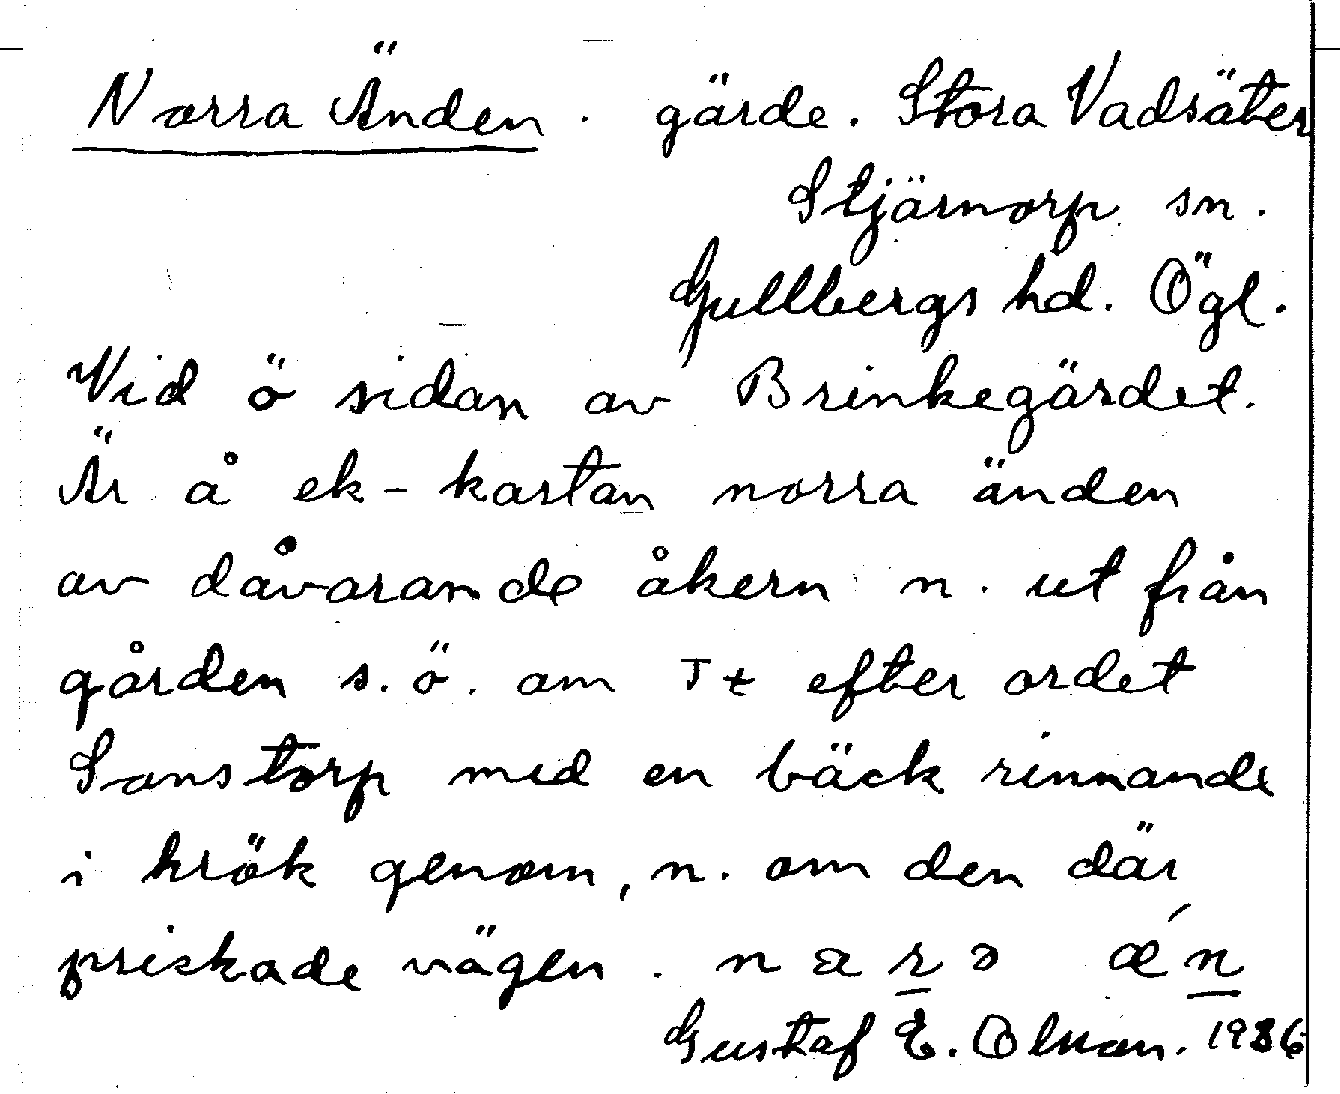 Norra Änden. gärde. Stora Vadsäter
Stjärnorp sn.
Gullbergs hd. Ögl.
Vid ö sidan av Brinkegärdet.
Är å ek-kartan norra änden
av dåvarande åkern n. ut från
gården s.ö. om Tt efter ordet
Sonstorp med en bäck rinnande
i krök genom, n. om den där
prickade vägen.
Gustaf E. Olman. 1986